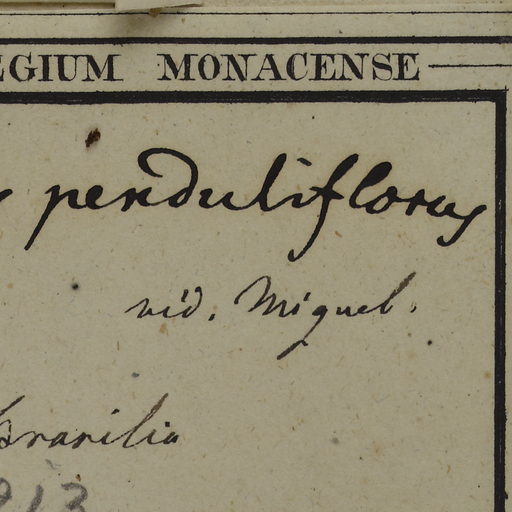 EGIUM MONACENSE
penduliflorus
vid. Miquel.
Brasilia
213